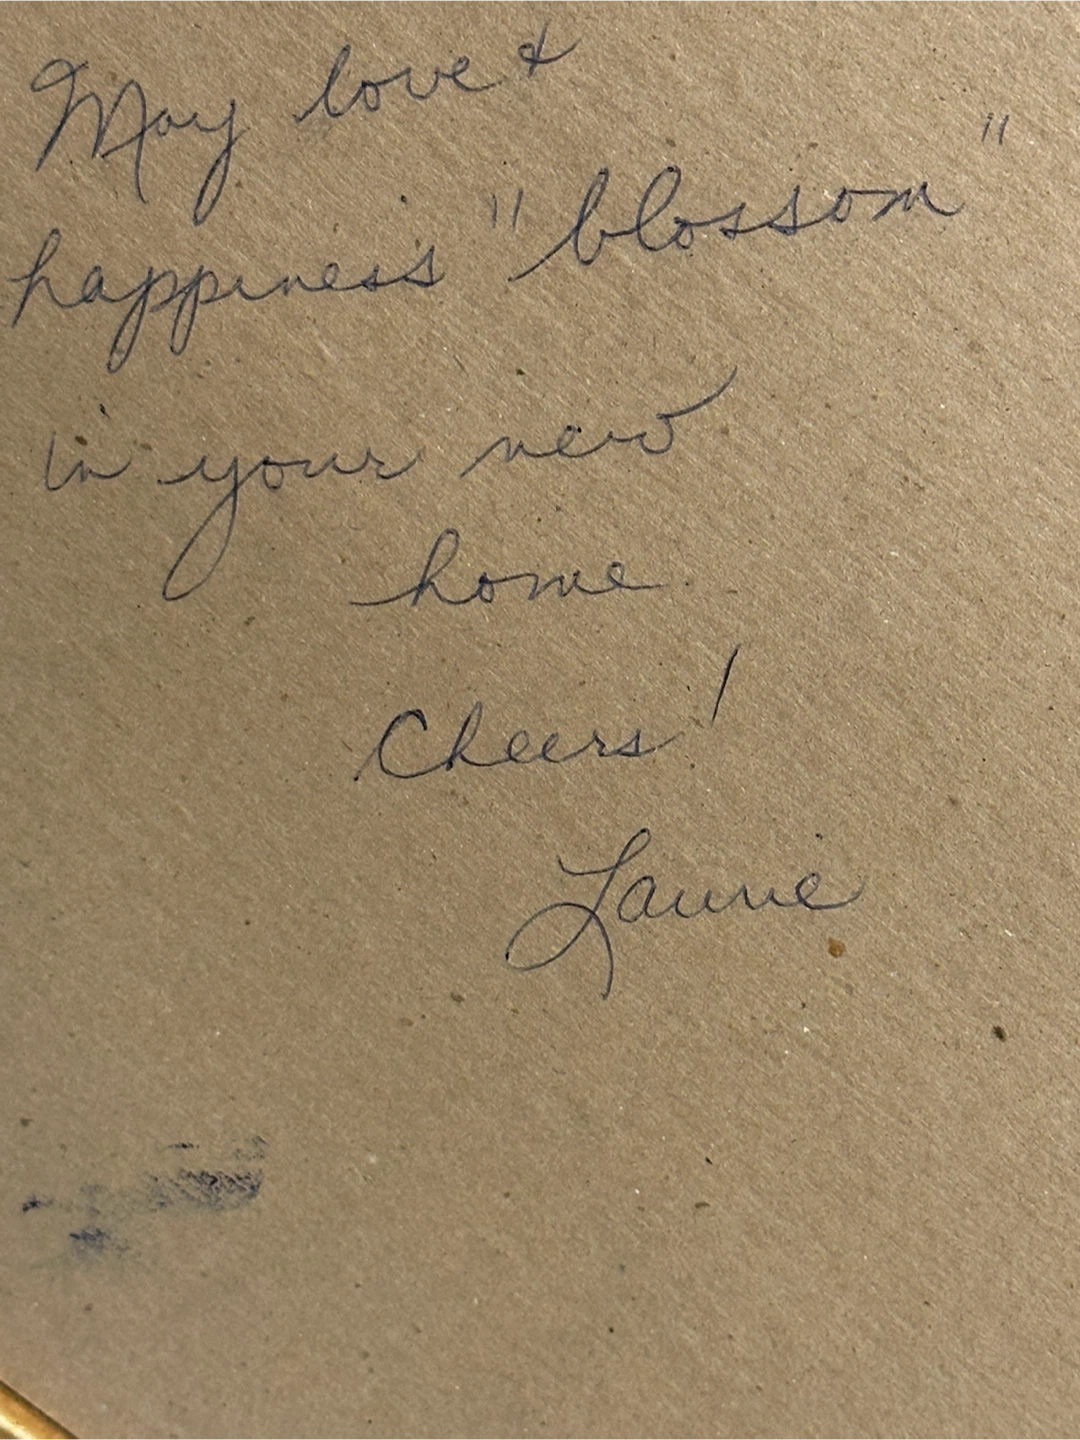 May love &
happiness "blossom"
in your new
home.
Cheers!
Laurie